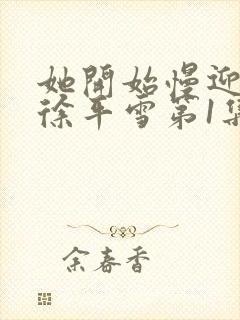 她開始慢迎
徐平雪第1集
余春香